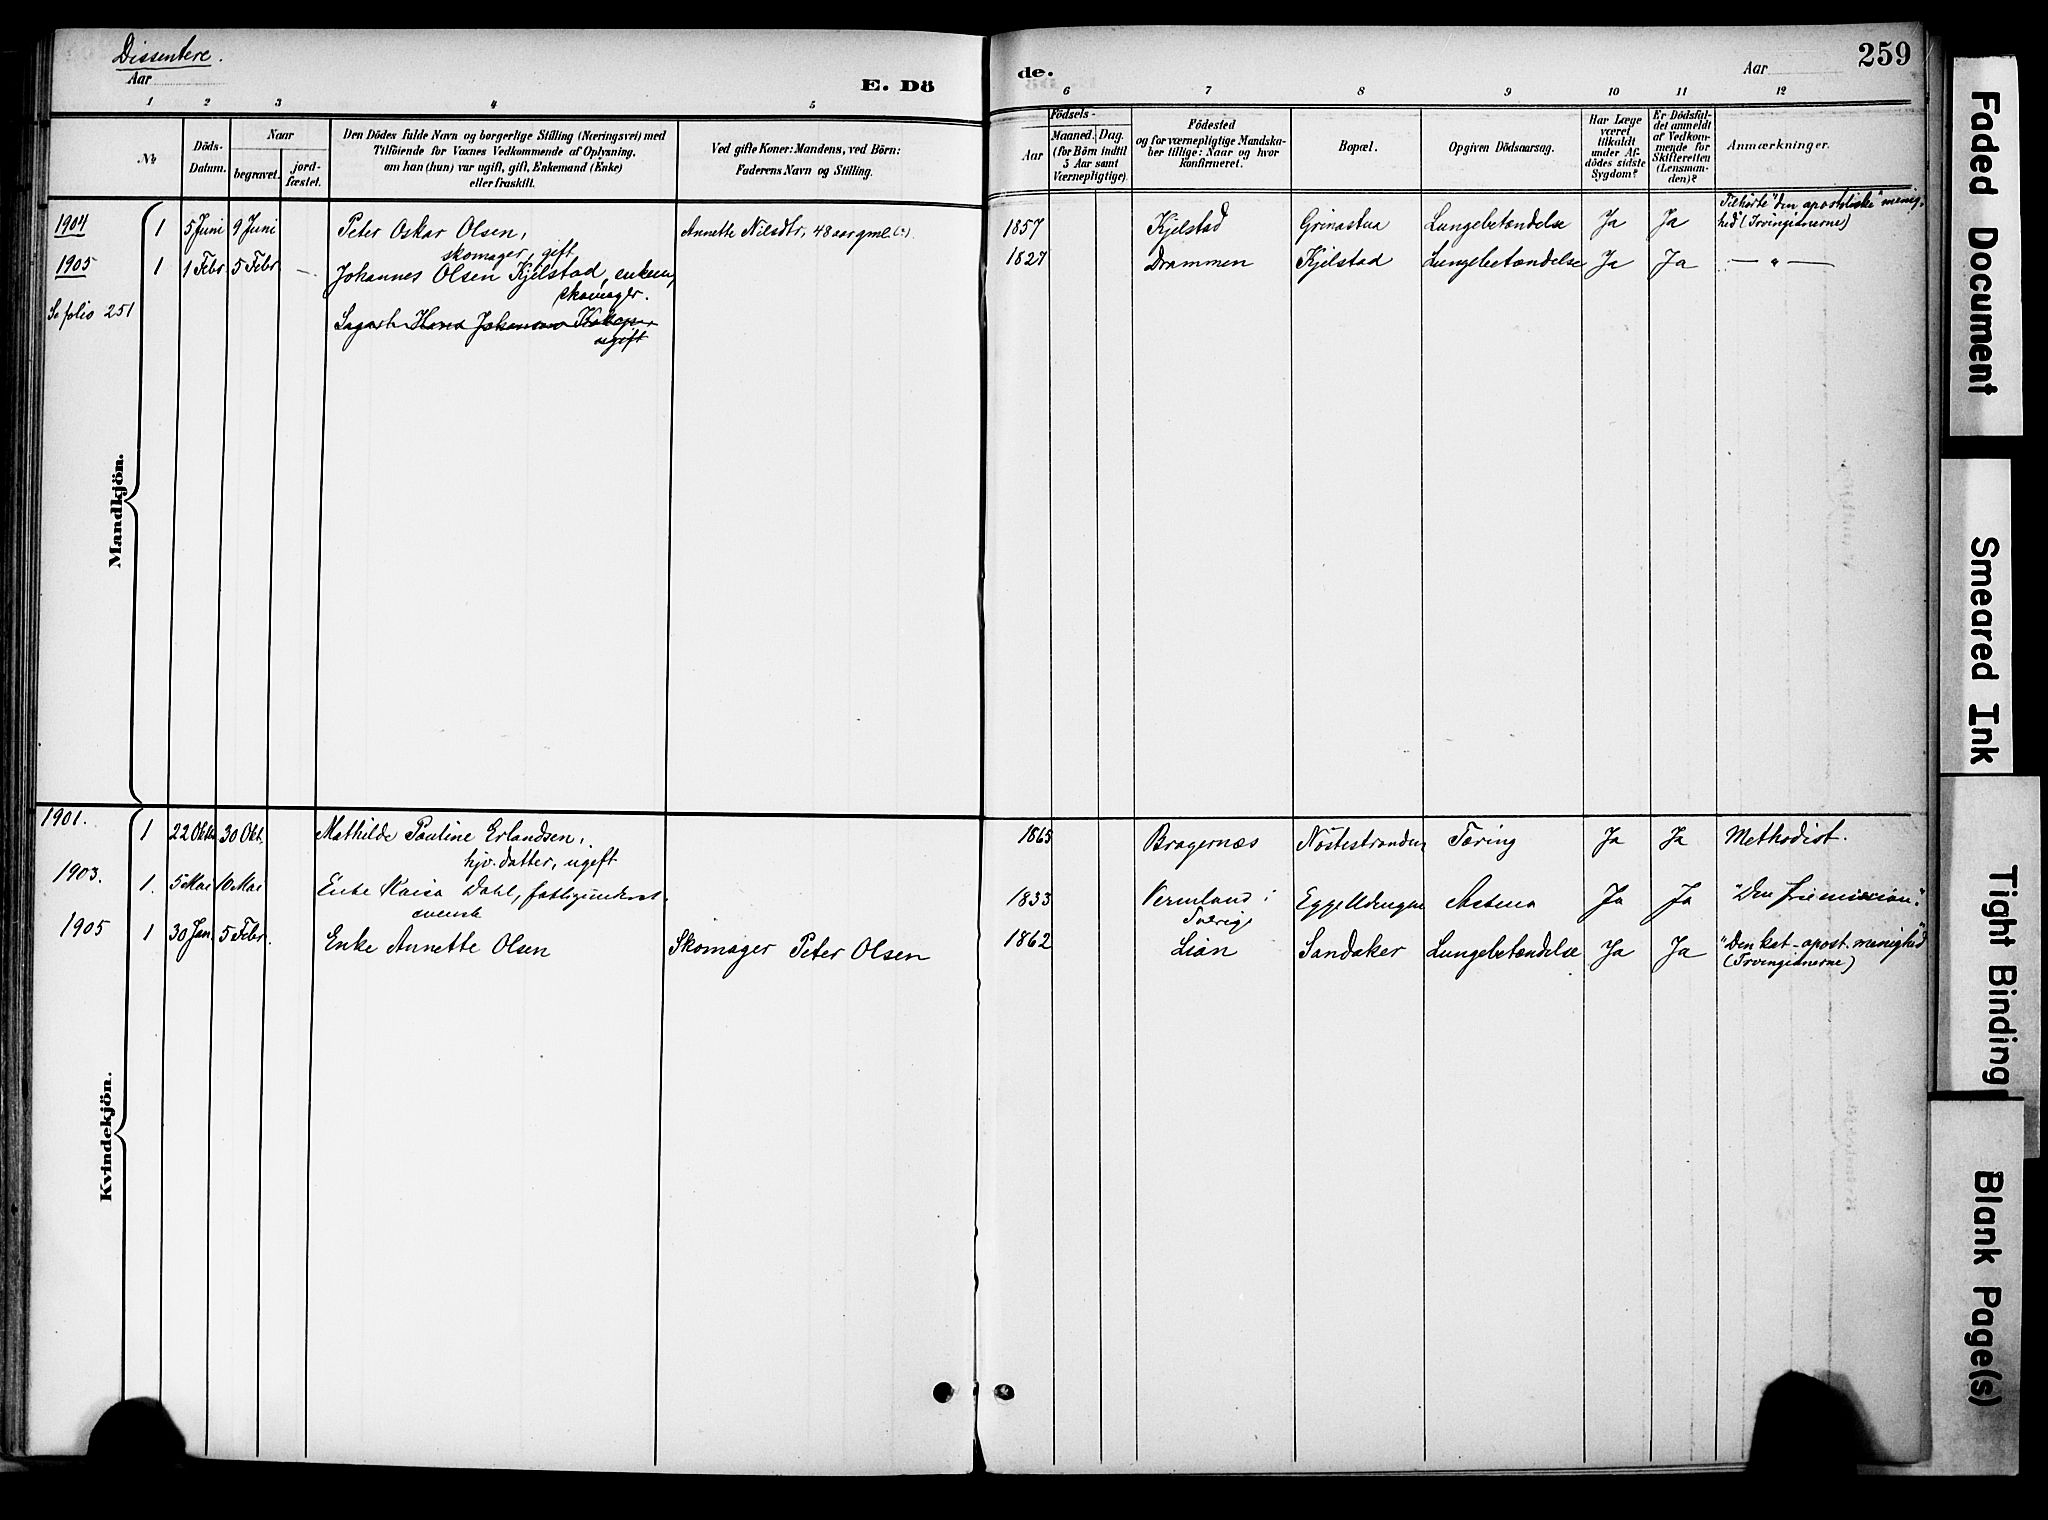 Dissentere.
Aar
E. Dö
de.
Aar
259
1 2 3 4 5 6 7 8 9 10 11 12
No
Döds-
Datum.
Naar
begravet.
jord-
fæstet.
Den Dödes fulde Navn og borgerlige Stilling (Næringsvei) med
Tilföiende for Voxnes Vedkommende af Oplysning,
om han (hun) var ugift, gift, Enkemand (Enke)
eller fraskilt.
Ved gifte Koner: Mandens, ved Börn:
Faderens Navn og Stilling.
Födsels-
Aar
Maaned. Dag.
(for Börn indtil
5 Aar samt
Værnepligtige).
Födested
og for værnepligtige Mandska-
ber tillige: Naar og hvor
konfirmeret.
Bopæl.
Opgiven Dödsaarsag.
Har Læge
været
tilkaldt
under Af-
dödes sidste
Sygdom?
Er Dödsfal-
det anmeldt
af Vedkom-
mende for
Skifteretten
(Lensman-
den)?
Anmærkninger.
Mandkjön.
1904 1 5 Juni 9 Juni Peter Oskar Olsen, Annette Nilsdtr, 48 aar gml. 1857 Kjelstad Grinastua Lungebetændelse Ja Ja Tilhørte "den apostoliske" menig-
skomager, gift hed (Irvingianerne)
1905 1 1 Febr 5 Febr — Johannes Olsen Kjelstad, enkem, 1827 Drammen Kjelstad Lungebetændelse Ja Ja — " —
skomager.
Se folio 251
ugift
Kvindekjön.
1901. 1 22 Okt 30 Okt. Mathilde Pauline Erlandsen, 1865 Bragernæs Nøstestranden Tæring Ja Ja Methodist.
hjv. datter, ugift
1903. 1. 5 Mai 10 Mai Enke Kaisa Dahl, fattigunderst. 1833 Vermland i Eggelldengen Astma Ja Ja "Den frie mission."
svensk Sverige
1905 1 30 Jan. 5 Febr. Enke Annette Olsen Skomager Peter Olsen 1862 Lian Sandaker Lungebetændelse Ja Ja "Den kat-apost. menighed"
(Irvingianerne)
Faded Document
Smeared Ink
Tight Binding
Blank Page(s)